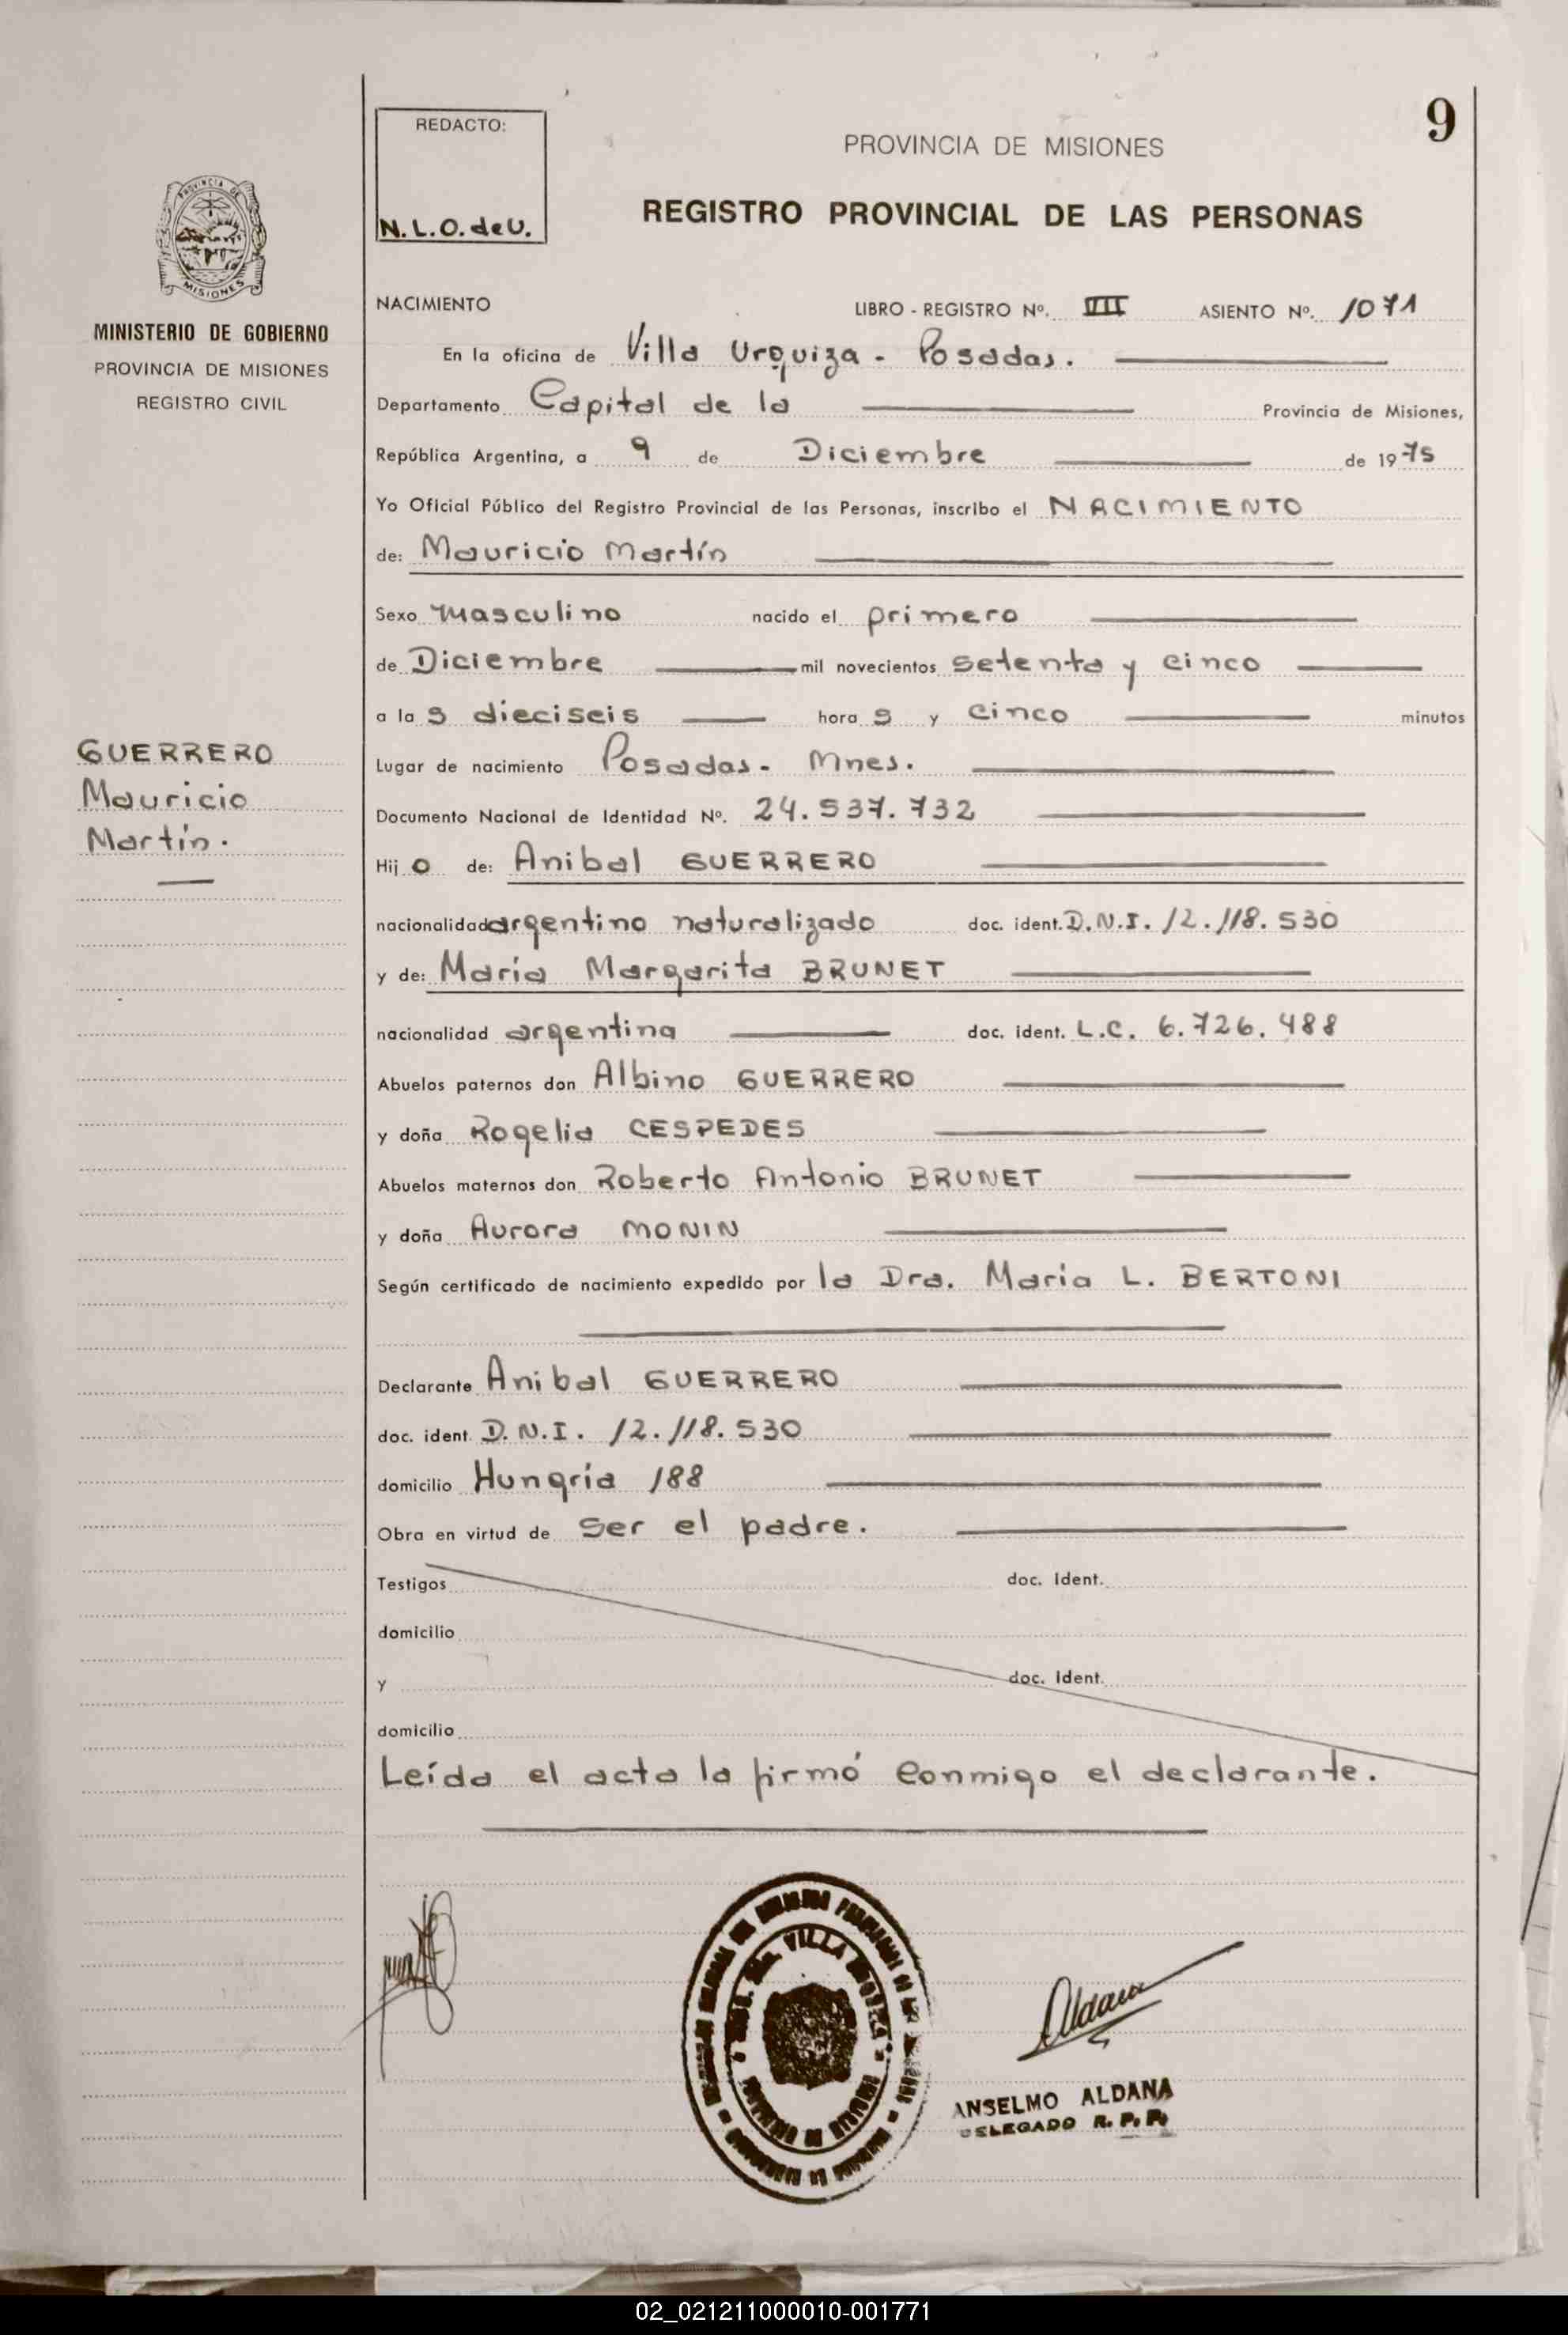 9
REDACTO:
N.L.O. de U.
PROVINCIA DE MISIONES
REGISTRO PROVINCIAL DE LAS PERSONAS
PROVINCIA DE
MISIONES
MINISTERIO DE GOBIERNO
PROVINCIA DE MISIONES
REGISTRO CIVIL
GUERRERO
Mauricio
Martín.
NACIMIENTO LIBRO - REGISTRO Nº. III ASIENTO Nº. 1071
En la oficina de Villa Urquiza - Posadas.
Departamento Capital de la Provincia de Misiones,
República Argentina, a 9 de Diciembre de 1975
Yo Oficial Público del Registro Provincial de las Personas, inscribo el NACIMIENTO
de: Mauricio Martín
Sexo Masculino nacido el primero
de Diciembre mil novecientos setenta y cinco
a las dieciseis horas y cinco minutos
Lugar de nacimiento Posadas - Mnes.
Documento Nacional de Identidad Nº. 24.537.732
Hijo de: Anibal GUERRERO
nacionalidad argentino naturalizado doc. ident. D.N.I. 12.118.530
y de: María Margarita BRUNET
nacionalidad argentina doc. ident. L.C. 6.726.488
Abuelos paternos don Albino GUERRERO
y doña Rogelia CESPEDES
Abuelos maternos don Roberto Antonio BRUNET
y doña Aurora MONIN
Según certificado de nacimiento expedido por la Dra. María L. BERTONI
Declarante Anibal GUERRERO
doc. ident. D.N.I. 12.118.530
domicilio Hungría 188
Obra en virtud de ser el padre.
Testigos doc. Ident.
domicilio
y doc. Ident.
domicilio
Leída el acta la firmó conmigo el declarante.
VILLA
Aldana
ANSELMO ALDANA
DELEGADO R. P. P.
02_021211000010-001771